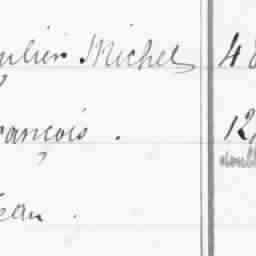 ulien Michel 48
rançois . 12,
ean .